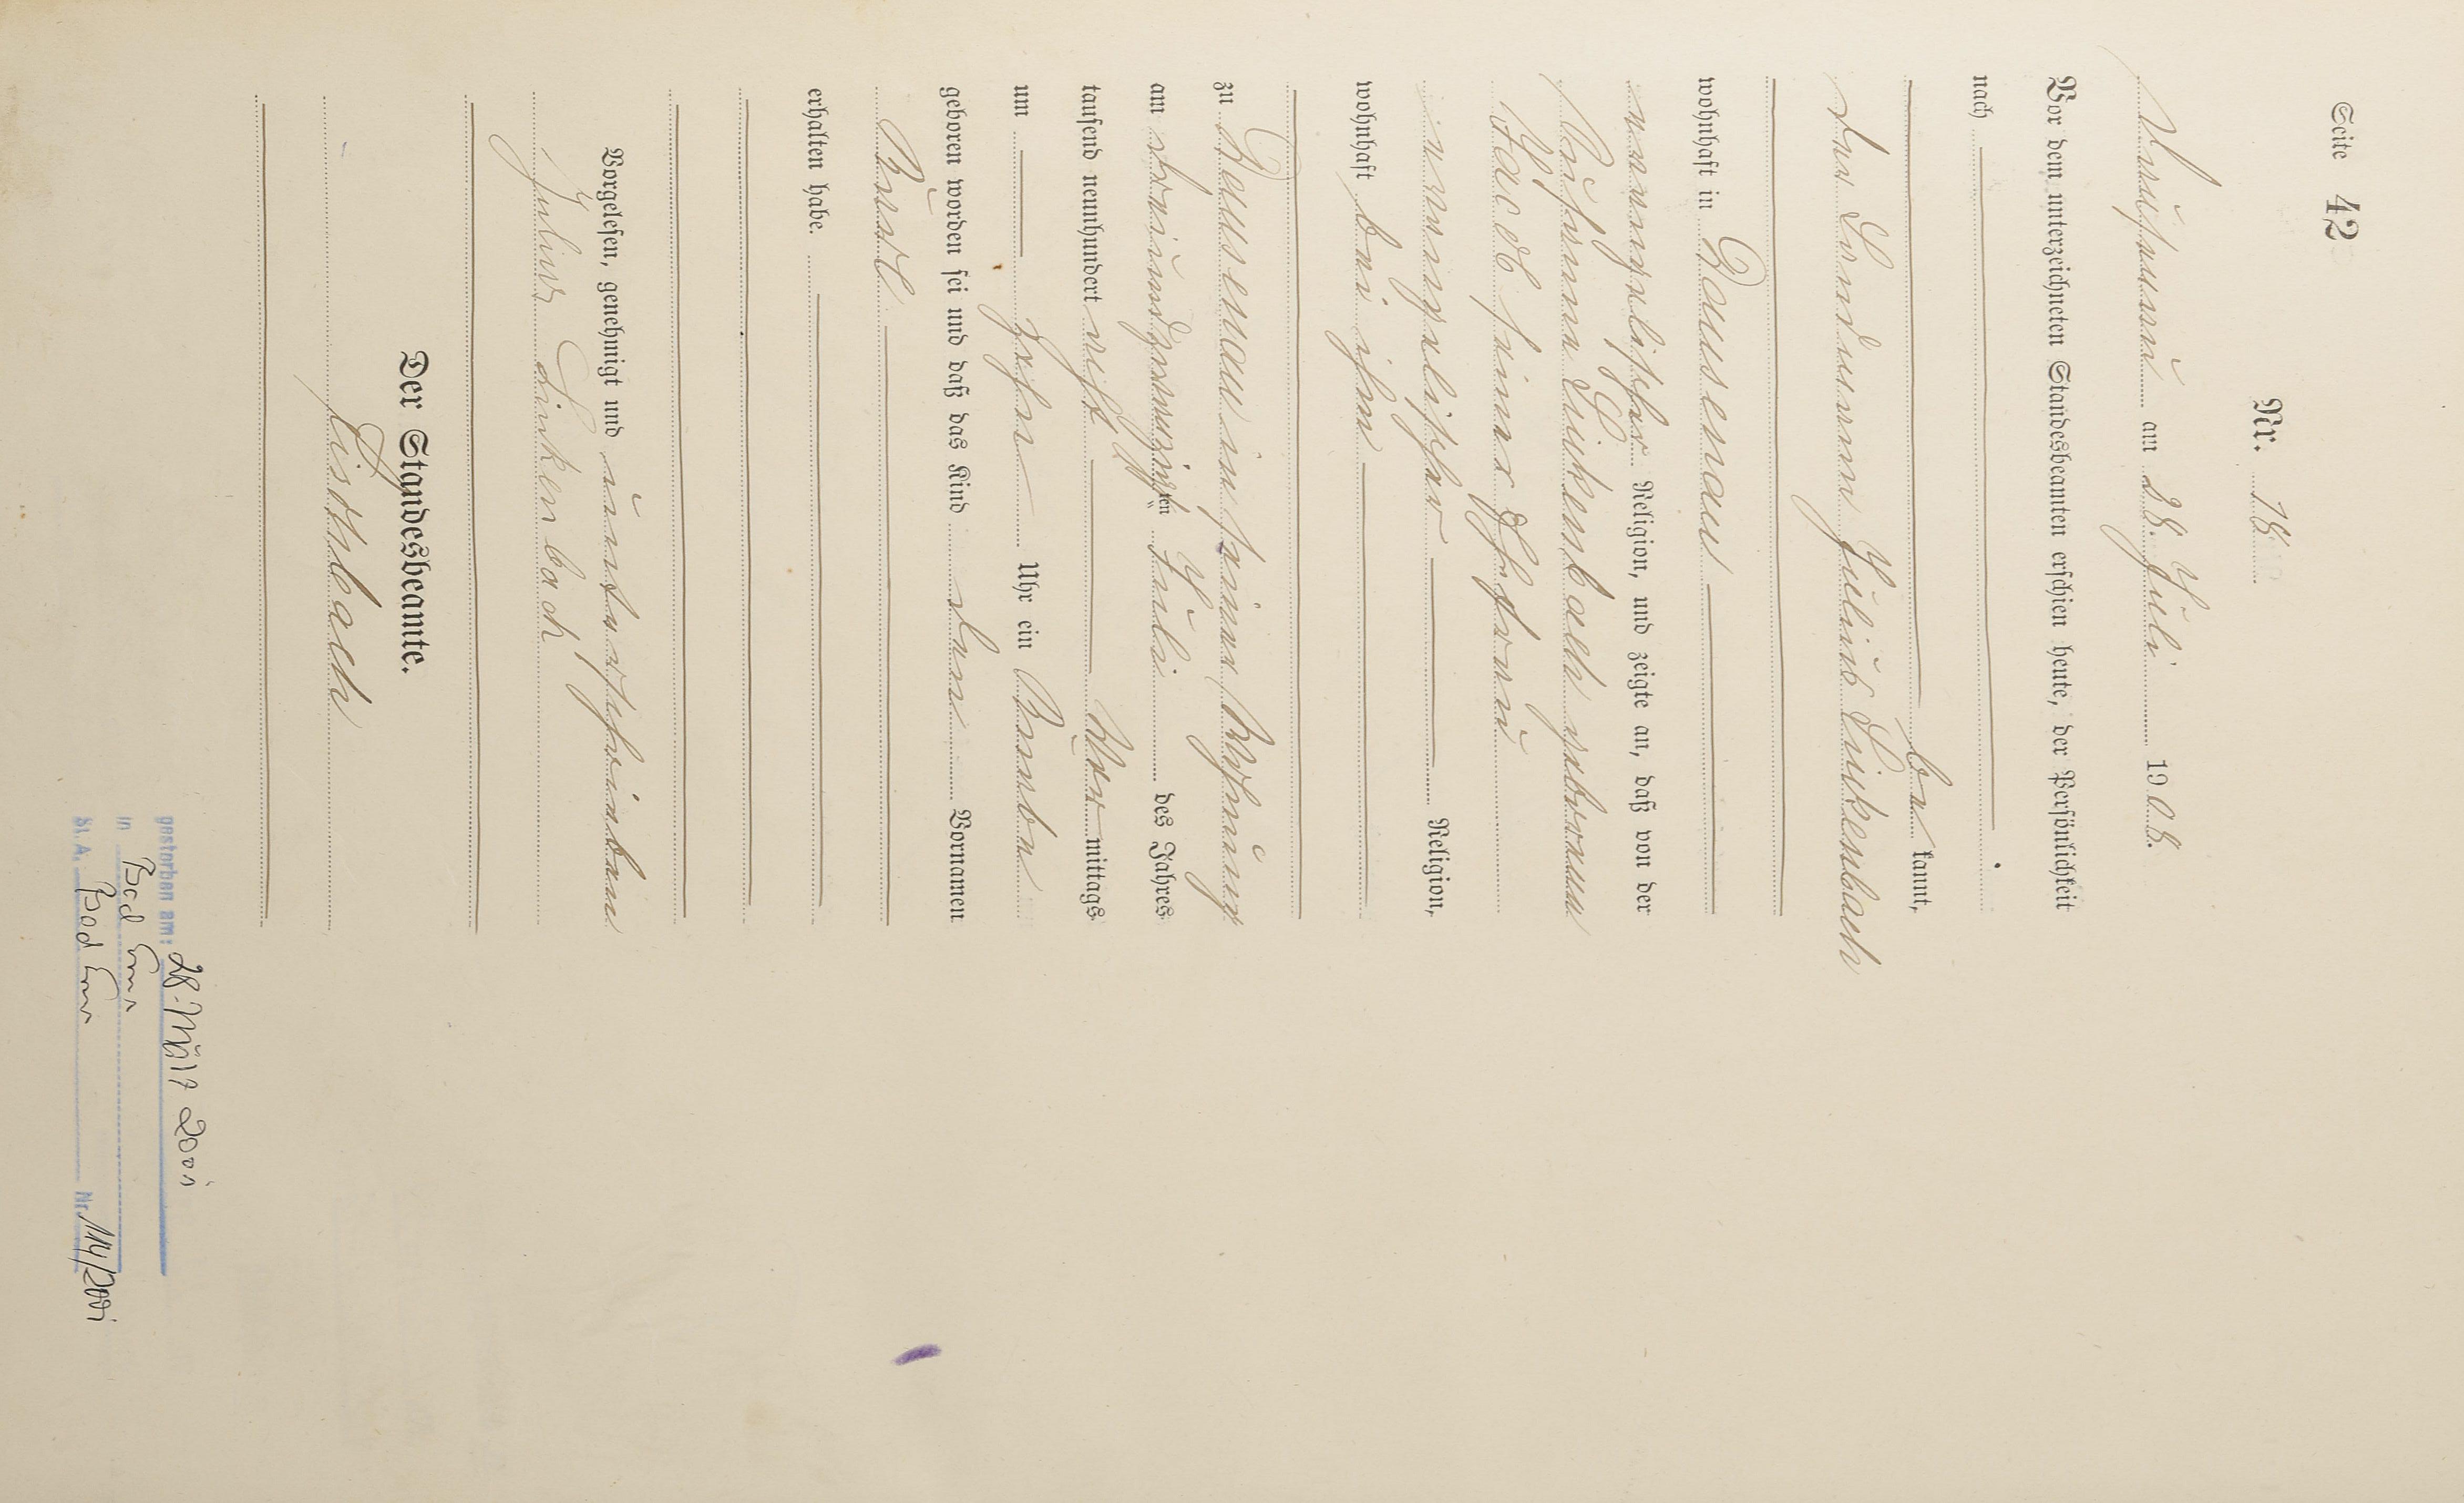 Seite 42
Nr. 18
am 28. Juli 1908.
Vor dem unterzeichneten Standesbeamten erschien heute, der Persönlichkeit
nach
be kannt,
der Landmann Julius Linkenbach
wohnhaft in Dausenau
evangelischer Religion, und zeigte an, daß von der
Linkenbach geborene
seiner Ehefrau
evangelischer Religion,
wohnhaft bei ihm
zu Dausenau in seiner Wohnung
am dreiundzwanzigsten Juli des Jahres
tausend neunhundert acht Vormittags
um zehn Uhr ein Knabe
geboren worden sei und daß das Kind den Vornamen
Karl
erhalten habe.
Vorgelesen, genehmigt und unterschrieben
Julius Linkenbach
Der Standesbeamte.
Fischbach
gestorben am: 28. März 2001
in Bad Ems
St. A. Bad Ems Nr. 114/2001